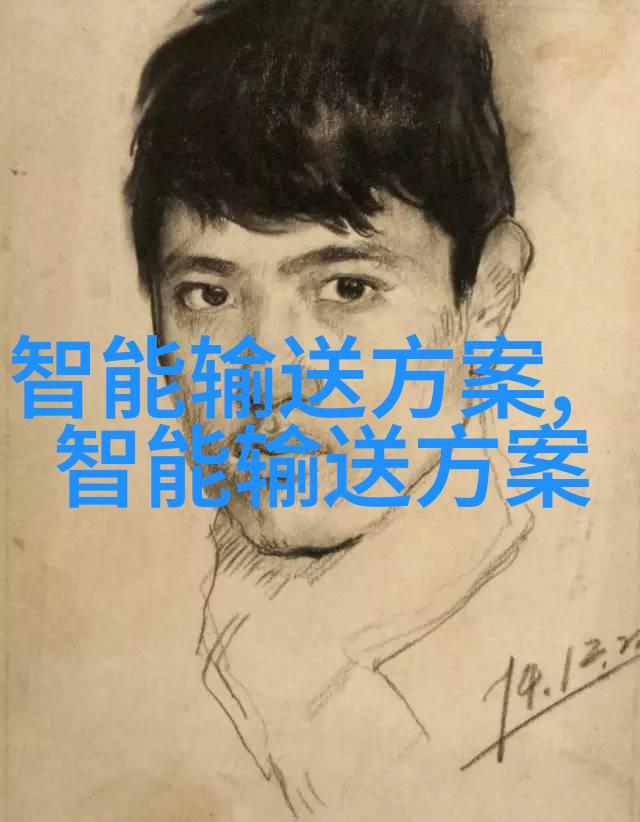 智能输送方案,
智能输送方案
14.12.2